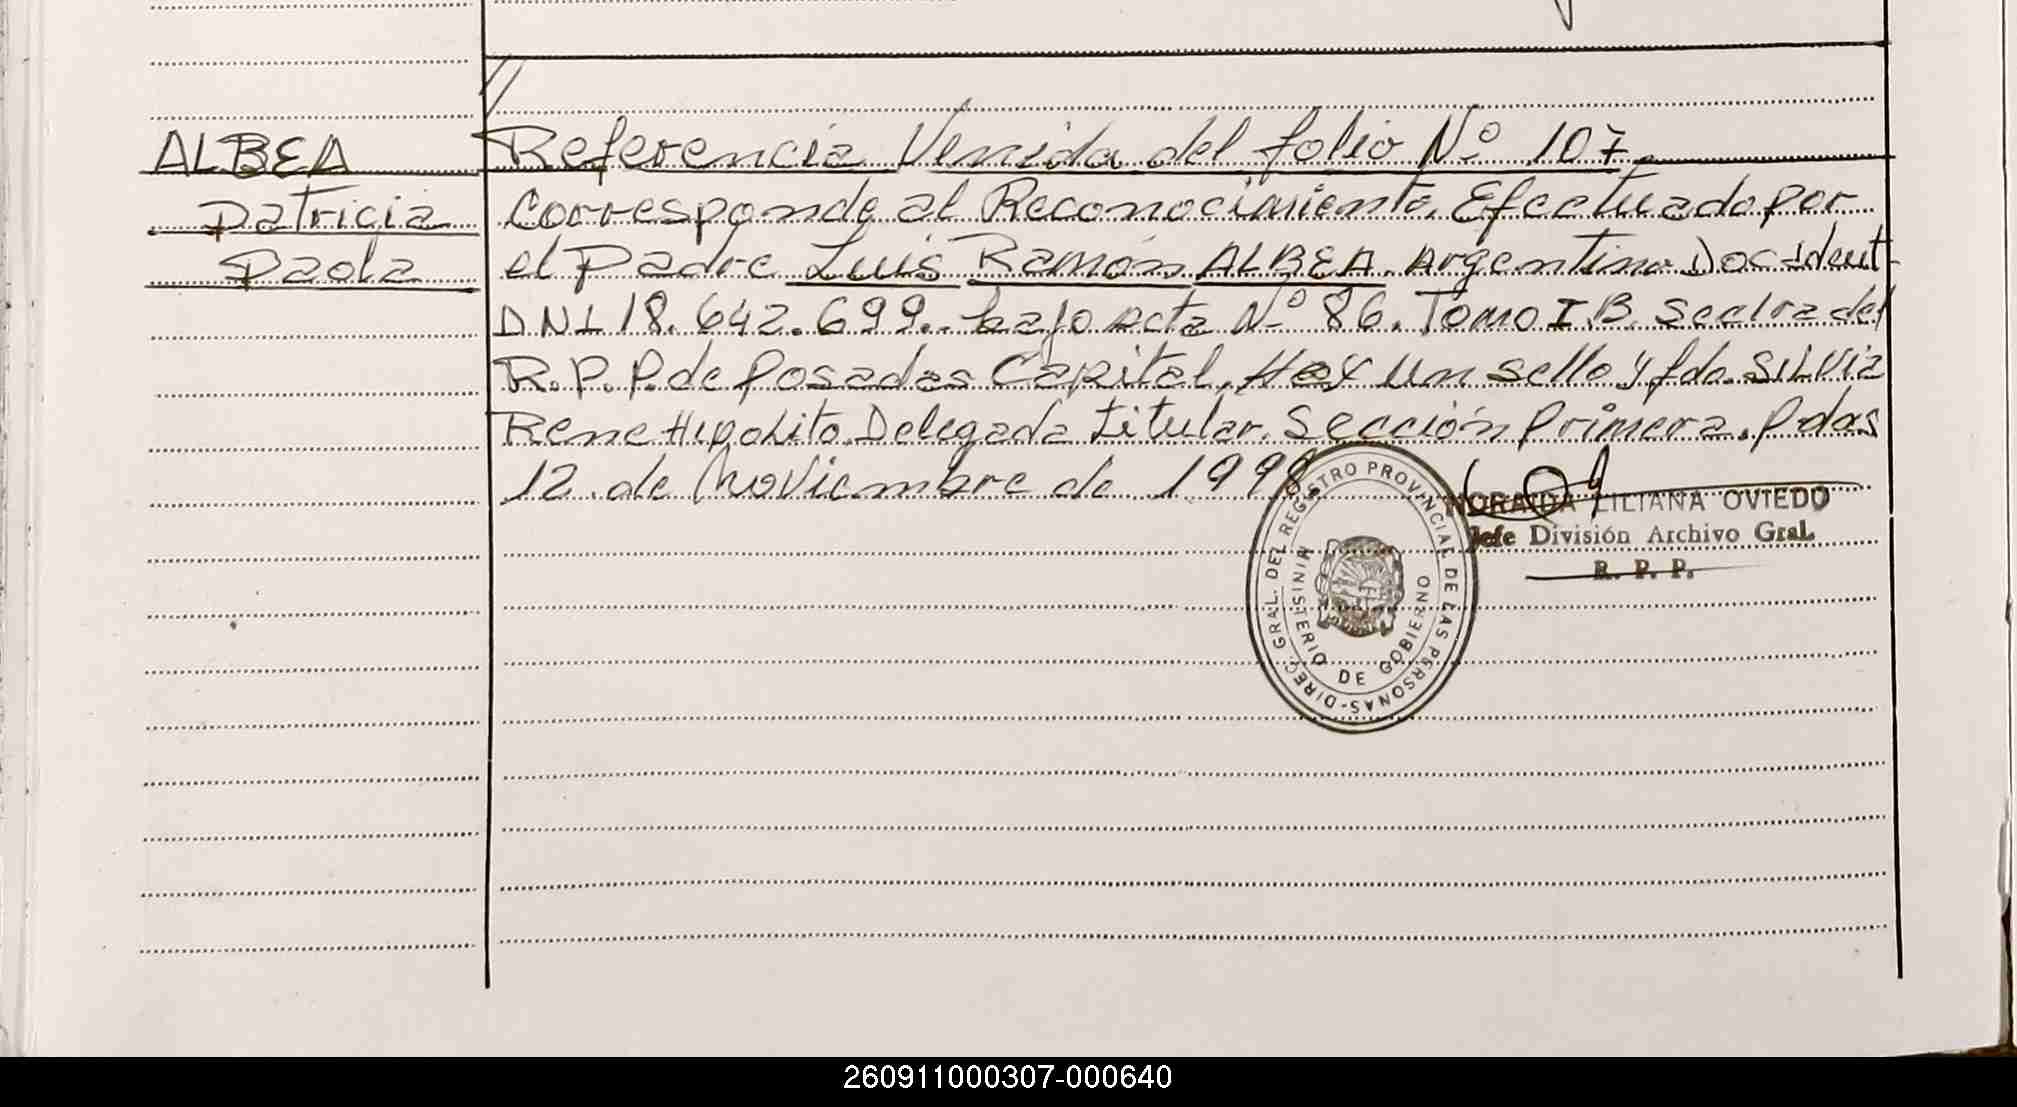 //
ALBEA Referencia Venida del folio Nº 107.
Patricia corresponde al Reconocimiento Efectuado por
Paola el Padre Luis Ramón ALBEA. Argentino Doc Ident
DNI 18.642.699.- bajo acta Nº 86. Tomo I.B. Sec 1ra del
R.P.P. de Posadas Capital, Hay un sello y fdo. SILVIA
Rene Hipolito Delegada titular. Sección Primera. Pdas
12 de Noviembre de 1998
NORAIDA LILIANA OVIEDO
Jefe División Archivo Gral.
R. P. P.
DIREC. GRAL. DEL REGISTRO PROVINCIAL DE LAS PERSONAS-
MINISTERIO DE GOBIERNO
260911000307-000640